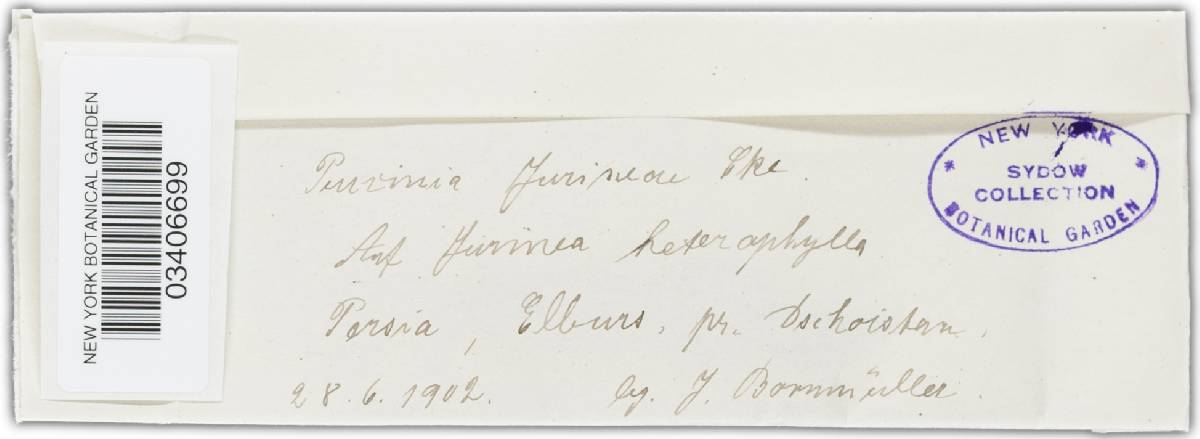 NEW YORK BOTANICAL GARDEN
03406699
Puccinia Jurineae Cke.
Auf Jurinea heterophylla
Persia, Elburs, pr. Dschoistan.
28.6.1902. leg. J. Bornmüller.
NEW YORK
* SYDOW *
COLLECTION
BOTANICAL GARDEN